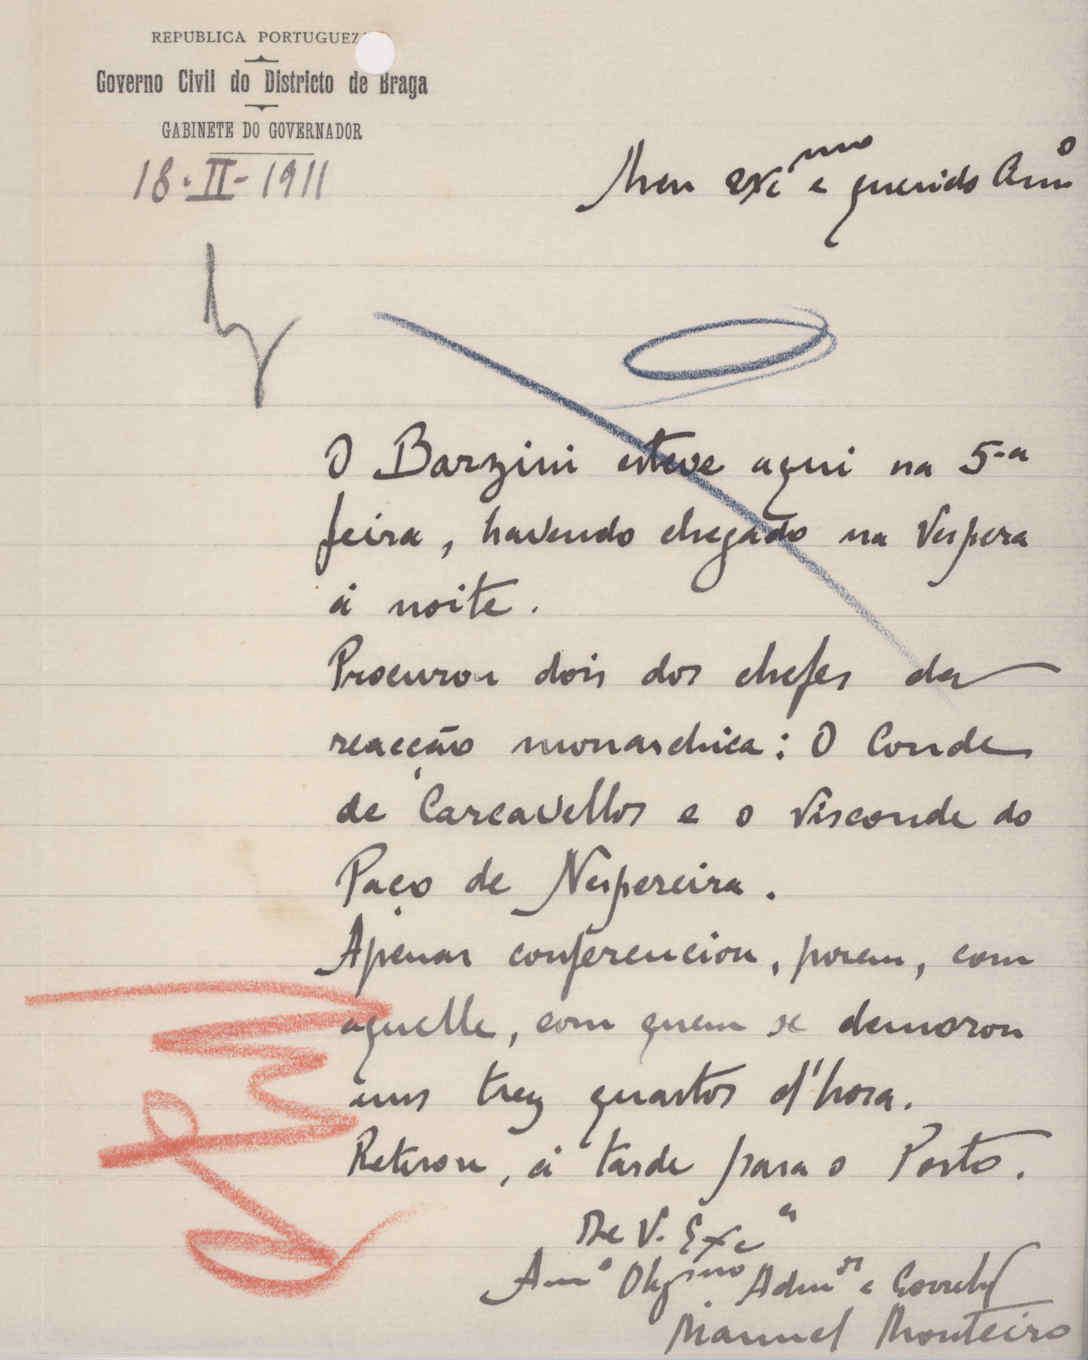 REPUBLICA PORTUGUEZA
Governo Civil do Districto de Braga
GABINETE DO GOVERNADOR
18-II-1911
Meu exc.mo e querido Am.o
O Barzini esteve aqui na 5.a
feira, havendo chegado na vespera
á noite.
Procurou dois dos chefes da
reacção monarchica: O Conde
de Carcavellos e o Visconde do
Paço de Nespereira.
Apenas conferenciou, porem, com
aquelle, com quem se demorou
uns trez quartos d'hora.
Retirou, á tarde para o Porto.
De V. Exc.a
Am.o Obg.mo Adm.or e Correlig
Manuel Monteiro